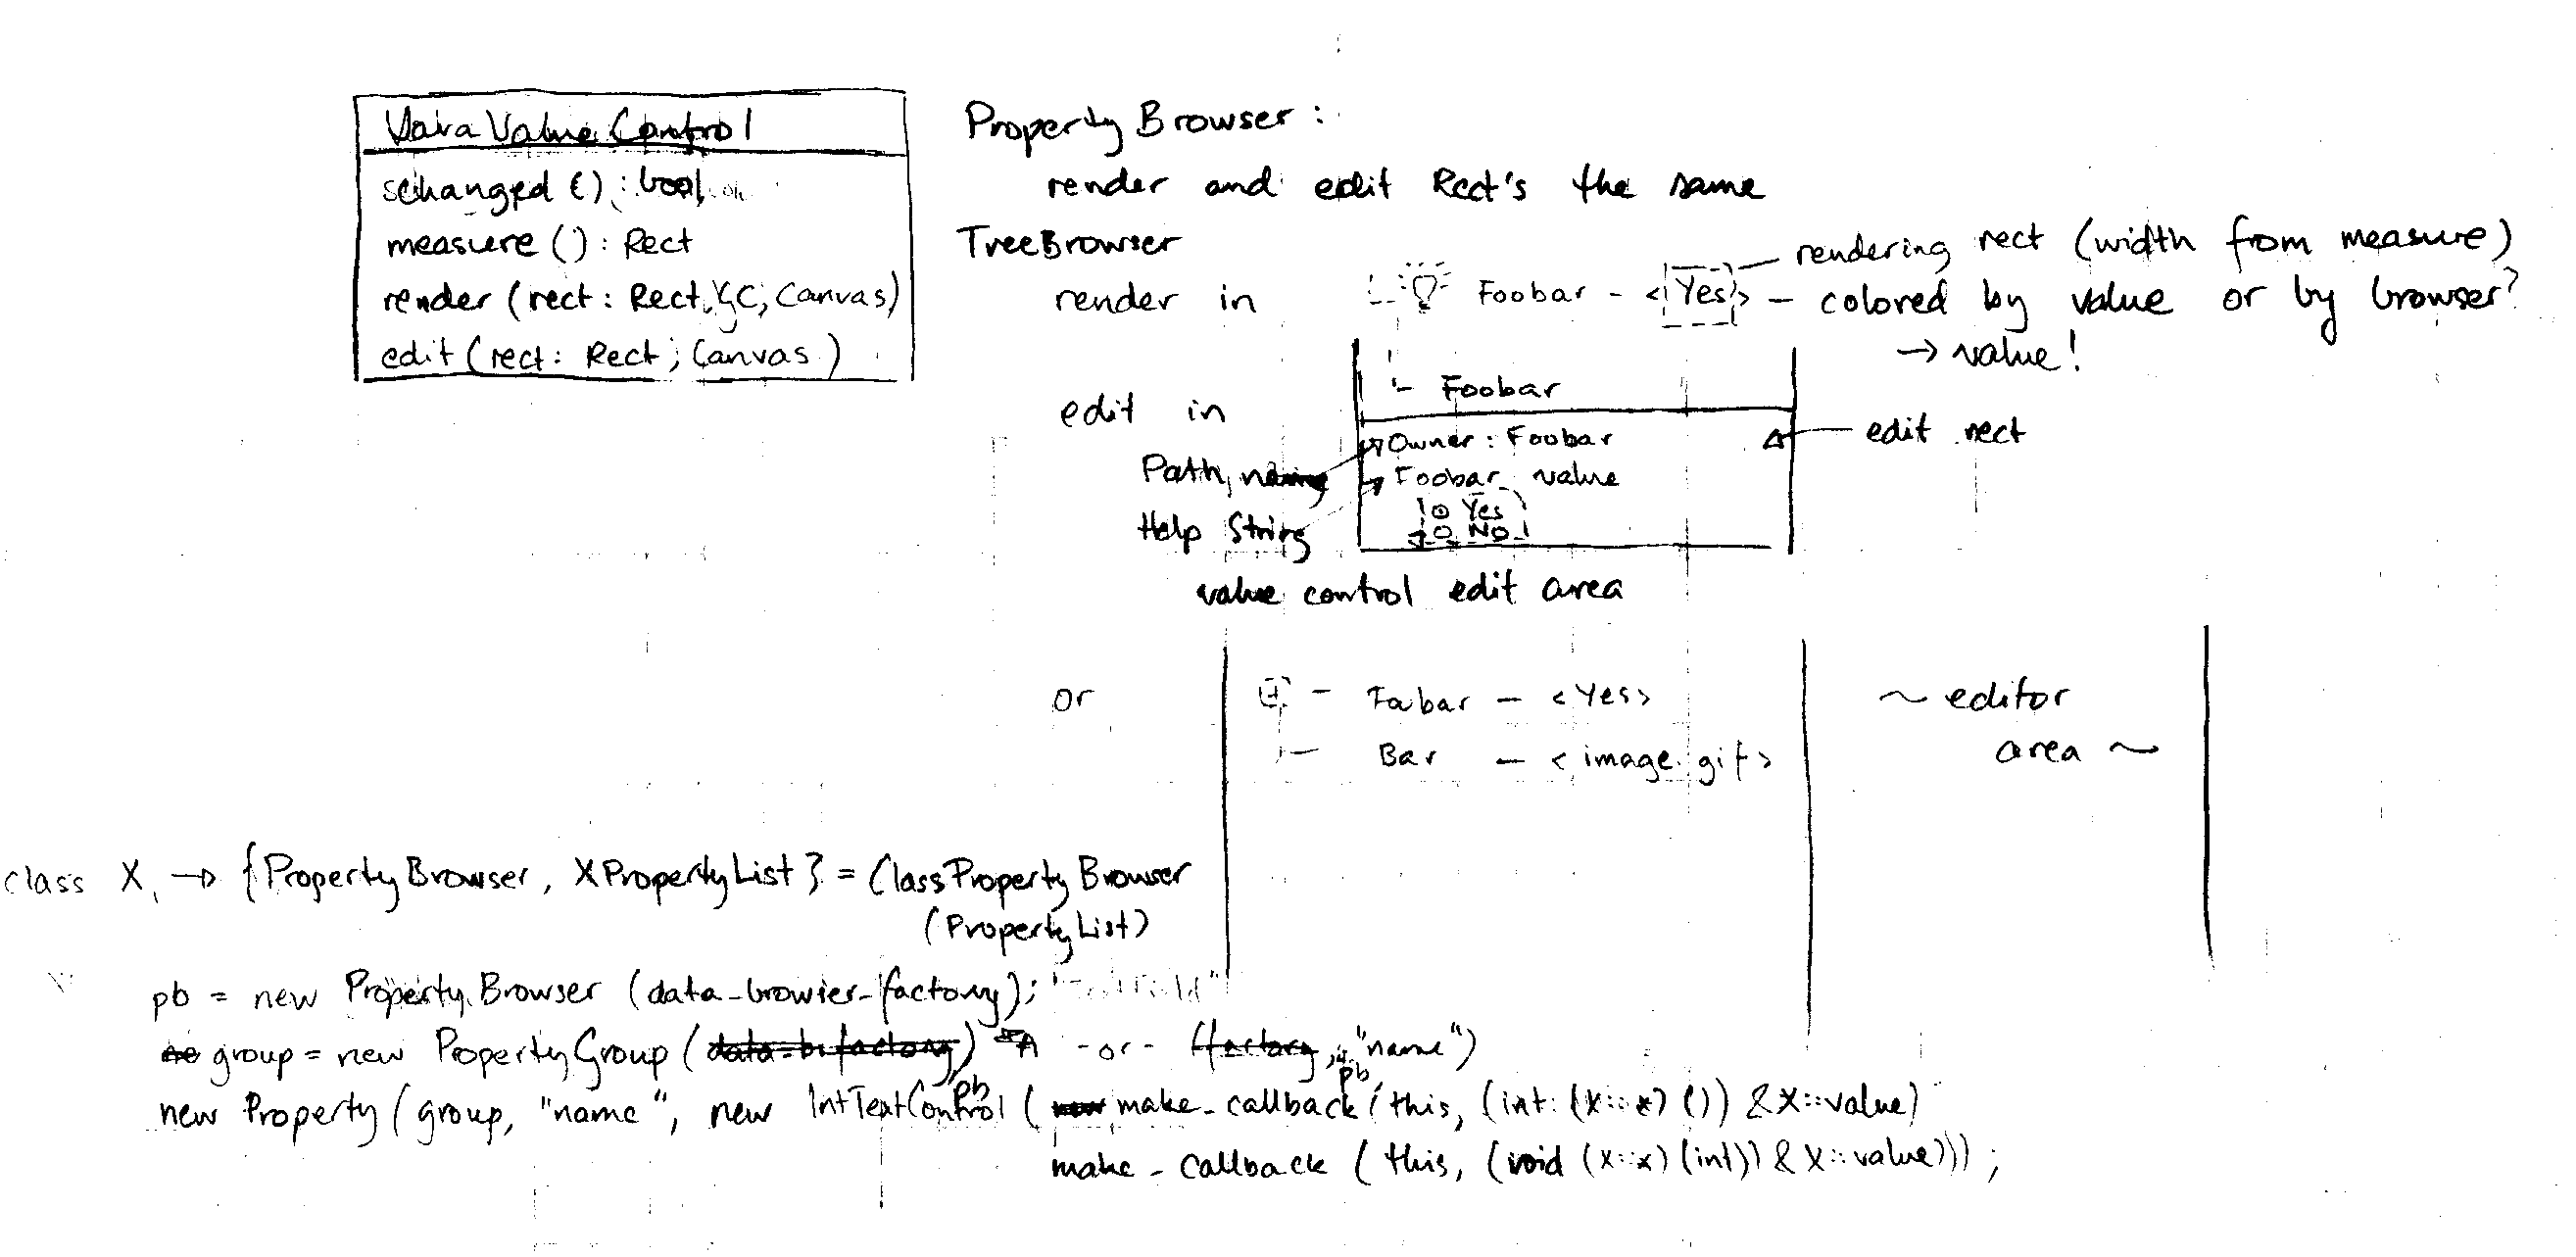 ValueControl
changed () : bool
measure () : Rect
render (rect : Rect, GC, Canvas)
edit (rect : Rect, Canvas)
PropertyBrowser :
render and edit Rect's the same
TreeBrowser
render in
Foobar - <Yes>
rendering rect (width from measure)
- colored by value or by browser?
→ value!
edit in
Foobar
Owner : Foobar
edit rect
Path, name
Foobar value
Help String
Yes
No
value control edit area
or
Foobar - <Yes>
Bar - <image.gif>
~ editor
area ~
class X → {PropertyBrowser, XPropertyList} = ClassPropertyBrowser
(PropertyList)
pb = new PropertyBrowser (data-browser-factory);
group = new PropertyGroup (data-b-factory) -or- (factory, "name")
pb
pb
new Property (group, "name", new IntTextControl (new make_callback (this, (int (X::*) ()) &X::value)
make_callback (this, (void (X::*) (int)) &X::value)));